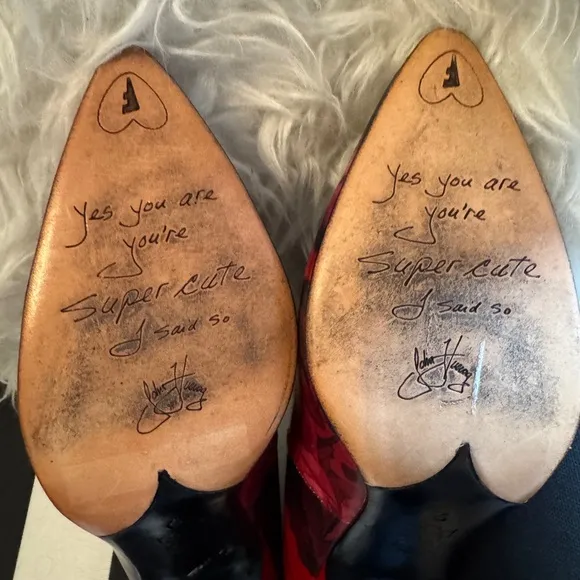 Yes you are
you're
Super cute
I said so
John Fluevog
Yes you are
you're
Super cute
I said so
John Fluevog